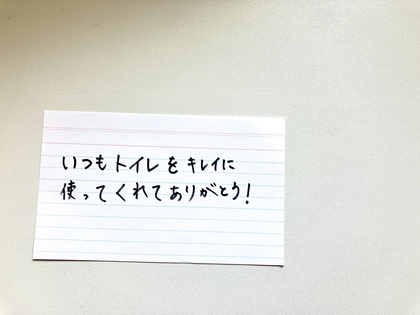 いつもトイレをキレイに
使ってくれてありがとう!